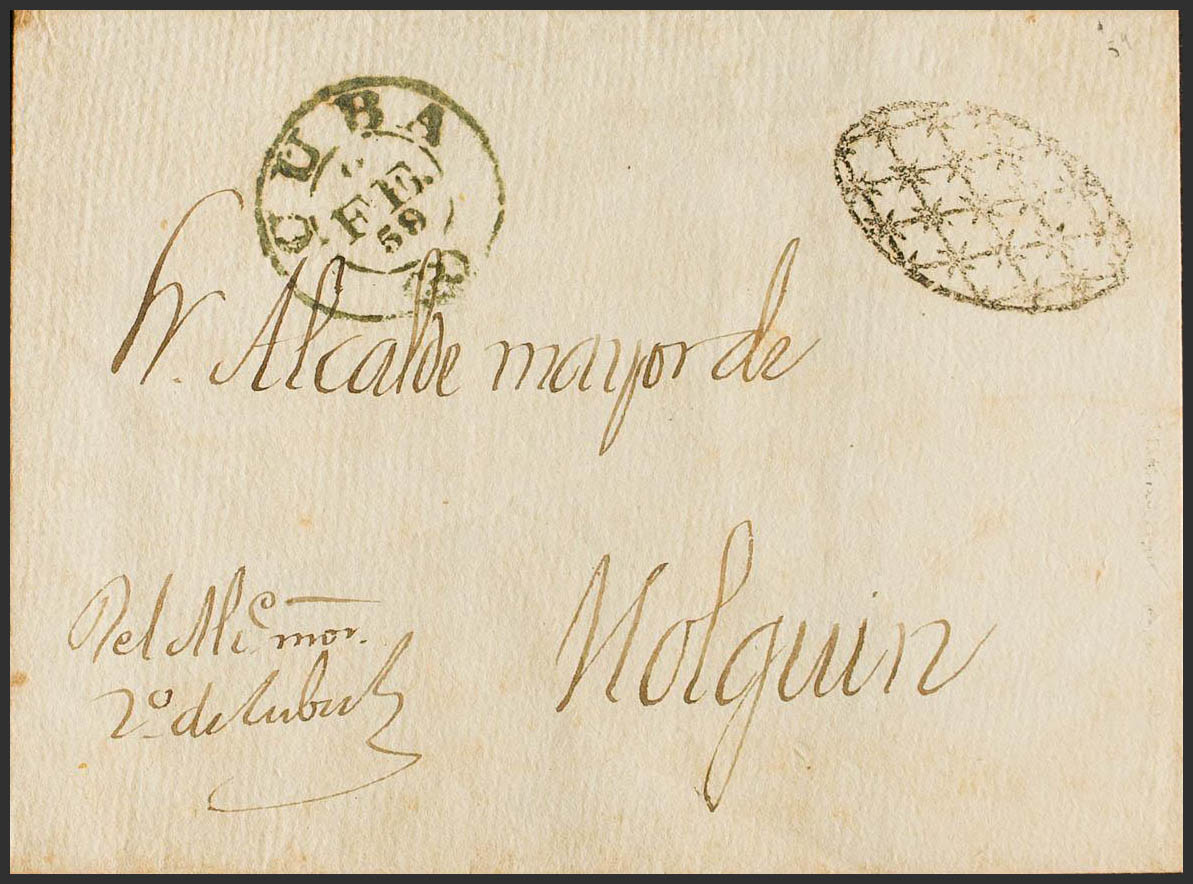 CUBA
FE.
59
Sr. Alcalde mayor de
Holguin
Del Alc.e mor.
2.º de Cuba